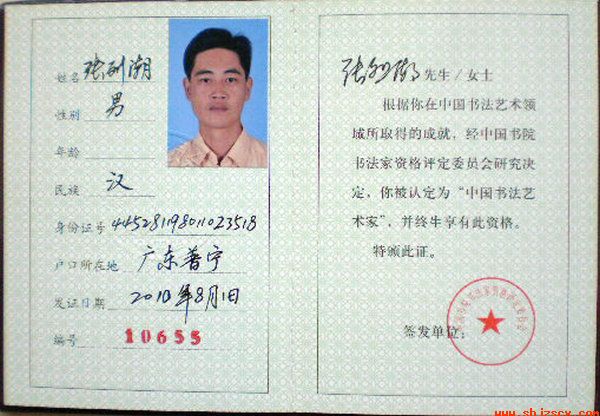 姓名
性别 男
年龄
民族 汉
身份证号 445281198011023518
户口所在地 广东普宁
发证日期 2010年8月1日
编号 10655
先生/女士
根据你在中国书法艺术领
域所取得的成就，经中国书院
书法家资格评定委员会研究决
定，你被认定为“中国书法艺
术家”，并终生享有此资格。
特颁此证。
签发单位：
www.shjzscy.com